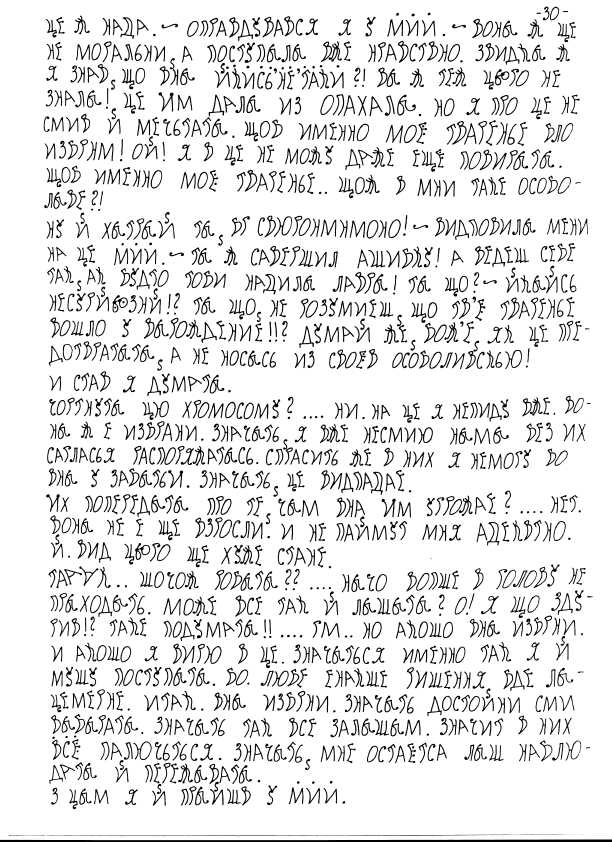 -30-
ЦЕ Ж НАЦА.~ ОПРАВДУВАВСЯ Я У МИИ.~ ВОНА Ж ЩЕ
НЕ МОРАЛЬНИ, А ПОСТУПАЛА ВЖЕ НРАВСТВНО. ЗВИДКА Ж
Я ЗНАВ, ЩО ВНА ЙКИСЬ НЕ ТАКИ ?! ВА Ж ТЕЖ ЦЬОГО НЕ
ЗНАЛА!, ЦЕ ИМ ДАЛА ИЗ ОПАХАЛА. НО Я ПРО ЦЕ НЕ
СМИВ Й МЕЧЬТАТА. ЩОБ ИМЕННО МОЕ ТВАРЕНЬЕ БЛО
ИЗБРНМ! ОЙ! Я В ЦЕ НЕ МОЖУ ДАЖЕ ЕЩЕ ПОВИРАТА.
ЩОБ ИМЕННО МОЕ ТВАРЕНЬЕ.. ЩОЖ В МНИ ТАКЕ ОСОБО-
ЛАВЕ?!
НУ Й ХАТРАЙ ТА, ВГ СВЮРОНМНМОНО!~ ВИДПОВИЛА МЕНИ
НА ЦЕ МИИ.~ ТА Ж САВЕРШИЛ АШИБКУ! А ВЕДЕШ СЕБЕ
ТАК, АК БУДТО ТОБИ НАЦИЛА ЛАВРА! ТА ЩО?~ ЙКАЙСЬ
НЕСУРЙОЗНИ!? ТА ЩО, НЕ РОЗУМИЕШ, ЩО ТВ'Е ТВАРЕНЬЕ
ВОШЛО У ВАРОЖДЕНИЕ!!? ДУМАЙ ЖЕ, БОЖ'Е, ЯК ЦЕ ПРЕ-
ДОТВРАТАТА, А НЕ НОСАСЬ ИЗ СВОЕВ ОСОБОЛИВСТЬЮ!
И СТАВ Я ДУМАТА.
ЧОРТНУТА ЦЮ ХРОМОСОМУ? .... НИ. НА ЦЕ Я НЕПИДУ ВЖЕ. ВО-
НА Ж Е ИЗБРАНИ. ЗНАЧАТЬ, Я ВЖЕ НЕСМИЮ НАМА БЕЗ ИХ
САГЛАСЬЯ РАСПОРЯЖАТАСЬ. СПРАСИТЬ ЖЕ В НИХ Я НЕМОГУ БО
ВНА У ЗАБВТИИ. ЗНАЧАТЬ, ЦЕ ВИДПАДАЕ.
ИХ ПОПЕРЕДАТА ПРО ТЕ, ЧАМ ВНА ИМ УГРОЖАЕ? .... НЕТ.
ВОНА НЕ Е ЩЕ ВЗРОСЛИ. И НЕ ПАЙМУТ МНЯ АДЕКВТНО.
Й. ВИД ЦЬОГО ЩЕ ХУЖЕ СТАНЕ.
ТАРЯК.. ШОЧОЖ РОБАТА ?? .... НАЧО ВОПШЕ В ГОЛОВУ НЕ
ПРАХОДАТЬ. МОЖЕ ВСЕ ТАК Й ЛАШАТА? О! Я ЩО ЗДУ-
РИВ!? ТАКЕ ПОДУМАТА!! .... ГМ.. НО АКОШО ВНА ЙЗБРНИ.
И АКОШО Я ВИРЮ В ЦЕ. ЗНАЧАТЬСЯ ИМЕННО ТАК Я Й
МУШУ ПОСТУПАТА. БО. ЛЮБЕ ЕНАКШЕ РИШЕННЯ, БДЕ ЛА-
ЦЕМЕРНЕ. ИТАК. ВНА ИЗБРНИ. ЗНАЧАТЬ ДОСТОЙНИ СМИ
ВАБАРАТА. ЗНАЧАТЬ ТАК ВСЕ ЗАЛАШАМ. ЗНАЧИТ В НИХ
ВСЁ ПАЛЮЧАТЬСЯ. ЗНАЧАТЬ, МНЕ ОСТАЕТСА ЛАШ НАБЛЮ-
ДАТА Й ПЕРЕЖАВАТА.
З ЦЫМ Я Й ПРАЙШВ У МИИ.